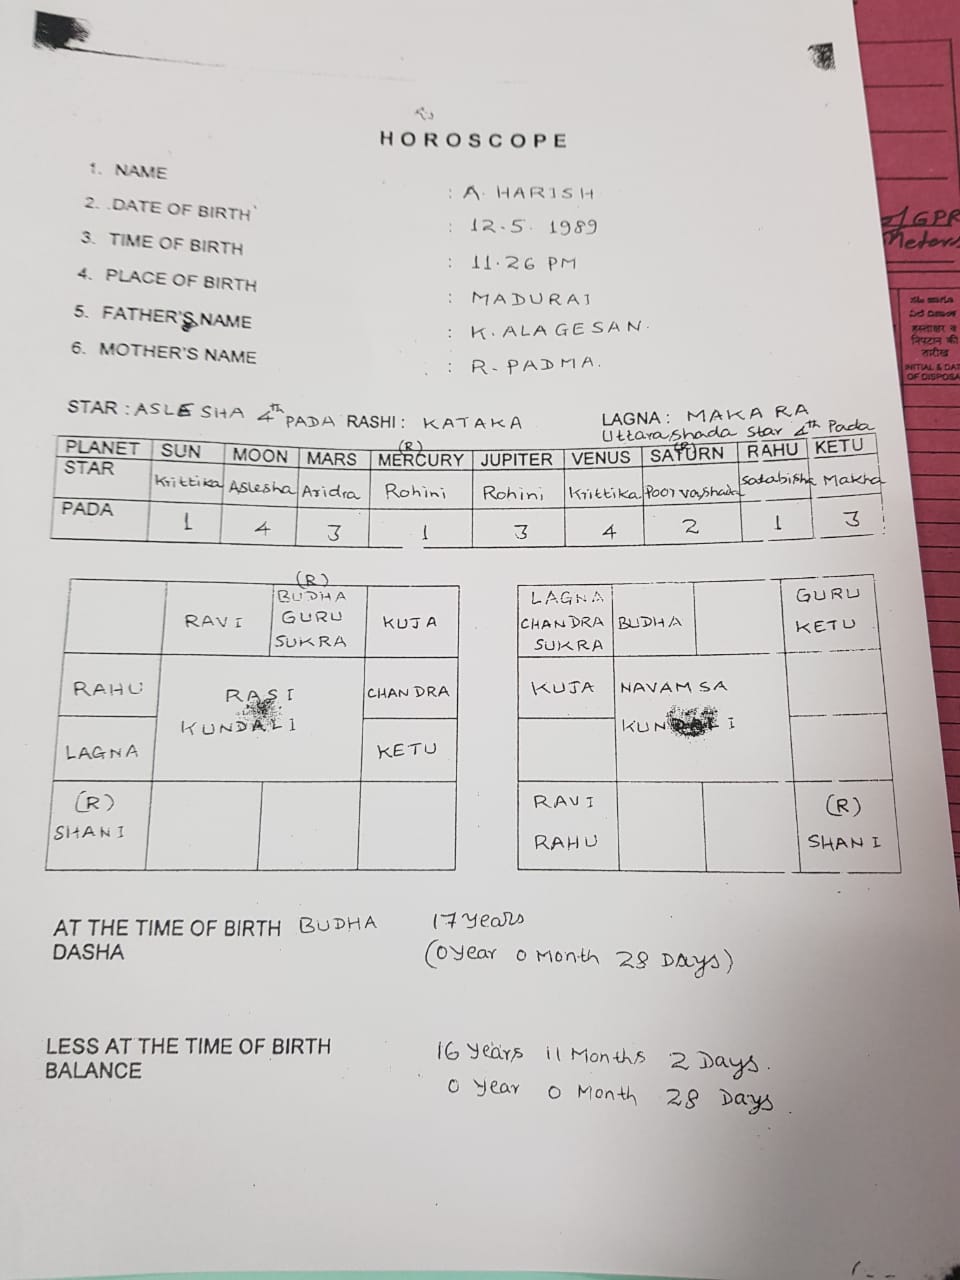 HOROSCOPE
1. NAME : A. HARISH
2. DATE OF BIRTH : 12.5. 1989
3. TIME OF BIRTH : 11.26 PM
4. PLACE OF BIRTH : MADURAI
5. FATHER'S NAME : K. ALAGESAN.
6. MOTHER'S NAME : R. PADMA.
STAR : ASLESHA 4th PADA RASHI : KATAKA LAGNA : MAKARA
Uttarashada Star 4th Pada
PLANET SUN MOON MARS (R) MERCURY JUPITER VENUS (R) SATURN RAHU KETU
STAR Krittika Aslesha Aridra Rohini Rohini Krittika Poorvashada Satabisha Makha
PADA 1 4 3 1 3 4 2 1 3
(R)
RAVI
BUDHA
GURU
SUKRA
KUJA
RAHU
RASI
KUNDALI
CHANDRA
LAGNA
KETU
(R)
SHANI
LAGNA
CHANDRA
SUKRA
BUDHA
GURU
KETU
KUJA
NAVAMSA
KUNDALI
RAVI
RAHU
(R)
SHANI
AT THE TIME OF BIRTH BUDHA 17 years
DASHA (0 year 0 Month 28 Days)
LESS AT THE TIME OF BIRTH 16 years 11 Months 2 Days.
BALANCE 0 year 0 Month 28 Days.
of GPR
Meters
हस्ताक्षर व
निपटान की
तारीख
INITIAL & DAT
OF DISPOSA